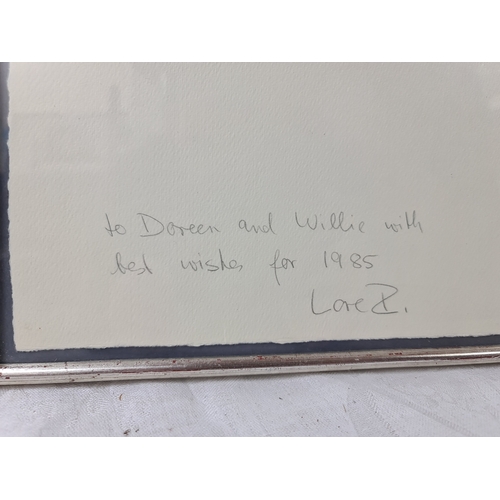 to Doreen and Willie with
best wishes for 1985
Lore Z.